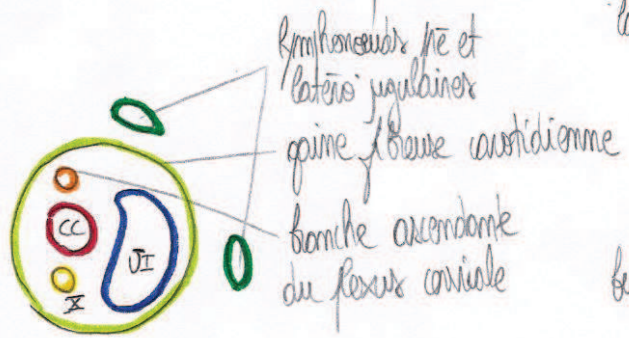 lymphonoeuds pré et
latéro jugulaires
gaine fibreuse carotidienne
branche ascendante
du plexus cervicale
CC
VI
X